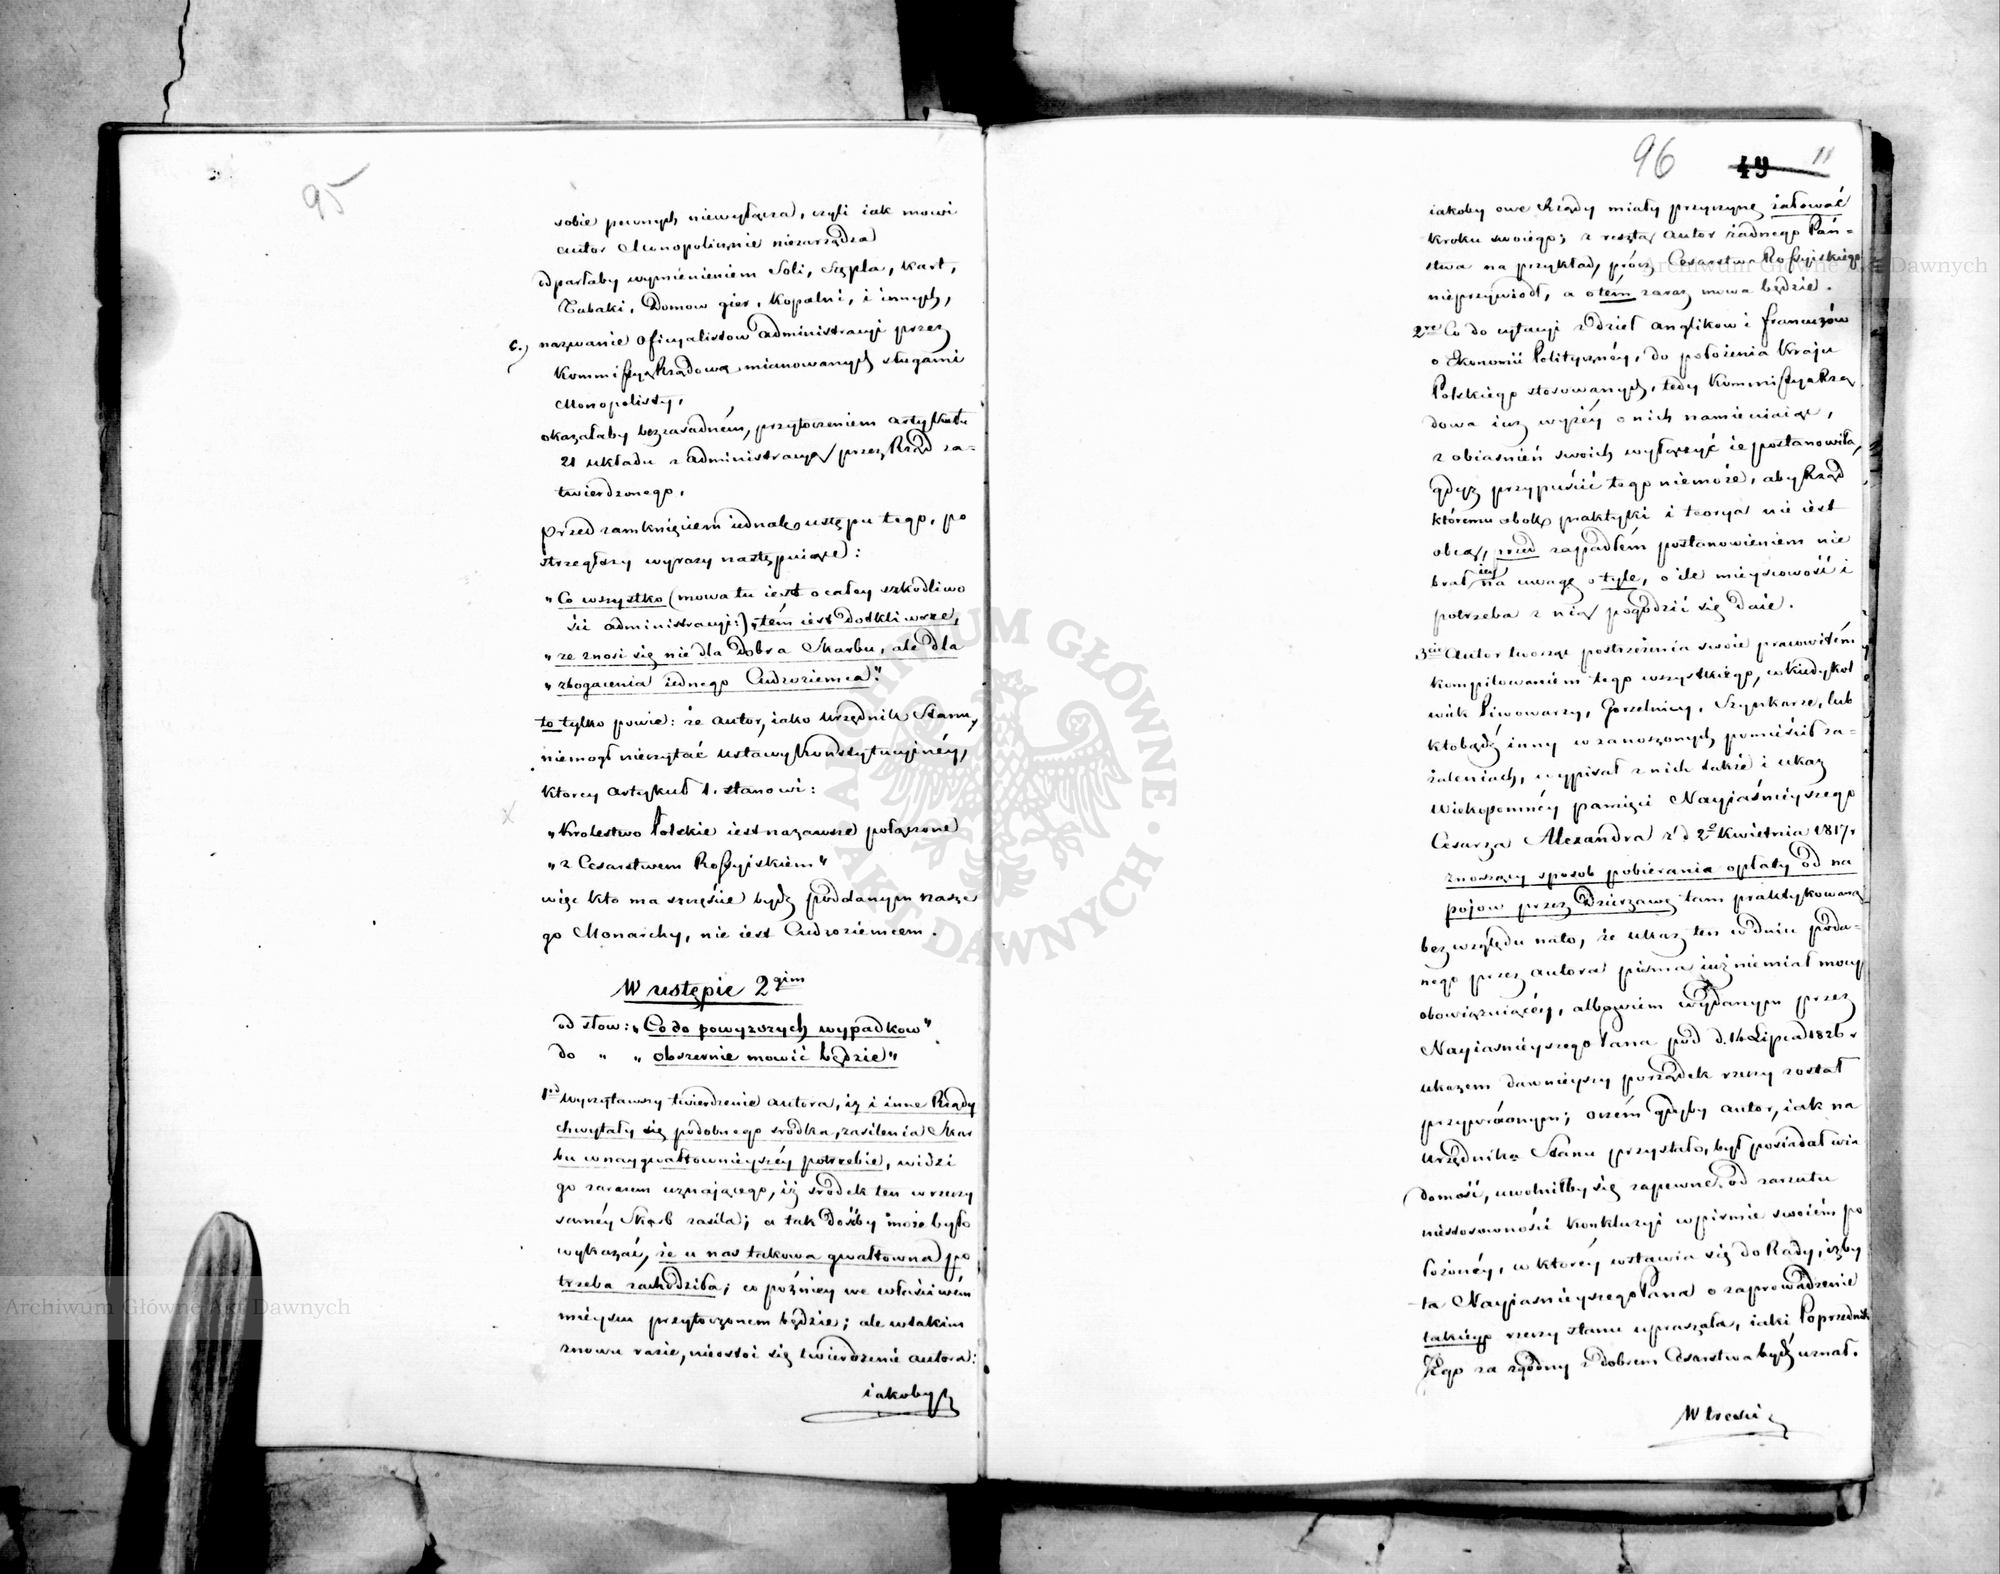 95
sobie pewnych niewyłącza, czyli iak mowi
autor Monopolicznie niezarządza
odparłaby wymienieniem Soli, Stępla, Kart,
Tabaki, Domow gier, Kopalni, i innych,
c.) nazwanie Oficyalistow administracyi przez
Kommissyą Rządową mianowanych sługami
Monopolisty,
okazałaby bezzasadném, przytoczeniem artykułu
21 układu z administracyą przez Rząd za-
twierdzonego.
Przed zamknięciem iednak ustępu tego, po
strzegłszy wyrazy następuiące:
„Co wszystko (mowa tu iest o całey szkodliwo
ści administracyi:) „tém iest dotkliwsze,
„że znosi się nie dla Dobra Skarbu, ale dla
„zbogacenia iednego Cudzoziemca"
to tylko powie: że autor, iako Urzędnik Stanu,
niemogł nieczytać Ustawy Konstytucyinéy,
ktorey artykuł 1. stanowi:
„Krolestwo Polskie iest nazawsze połączone
„z Cesarstwem Rossyiskiem"
więc kto ma szczęście bydź poddanym nasze
go Monarchy, nie iest Cudzoziemcem.
W ustępie 2gim
od słow: „Co do powyższych wypadkow"
do " „obszernie mowić będzie"
1od Wyczytawszy twierdzenie autora, iż i inne Rządy
chwytały się podobnego srodka, zasilenia Skar
bu w naygwałtownieyszéy potrzebie, widzi
go zarazem uznającego, iż srodek ten w rzeczy
saméy Skarb zasila; a tak dosyć może było
wykazać, że u nas takowa gwałtowna po
trzeba zachodziła; co poźniey we właściwém
mieyscu przytoczonem będzie; ale w takim
znowu razie, nieostoi się twierdzenie autora:
iakoby
96
49
11
iakoby owe Rządy miały przyczynę żałować
kroku swoiego; z resztą autor żadnego Pań-
stwa na przykład, prócz Cesarstwa Rossyiskiego
nieprzywiodł, a o tém zaraz mowa będzie.
2re Co do cytacyi z dzieł anglikow i francuzów
o Ekonomii Polityczney, do położenia Kraju
Polskiego stosowanych, tedy Kommissya Rzą
dowa iuż wyżéy o nich namieniaiąc,
z obiaśnień swoich wyłączyć ie postanowiła,
gdyż przypuścić tego niemoże, aby Rząd
któremu obok praktyki i teorya nie iest
obcą, przed zapadłém postanowieniem nie
brał iey na uwagę o tyle, o ile mieyscowość i
potrzeba z nią pogodzić się daie.
3cie Autor tworząc postrzeżenia swoie pracowitém
kompilowaniem tego wszystkiego, co kiedykol
wiek Piwowarzy, Gorzelnicy, Szynkarze, lub
ktobądź inny w zanoszonych pomieścił za-
żaleniach, wypisał z nich także i ukaz
Wiekopomnéy pamięci Nayiaśnieyszego
Cesarza Alexandra z d 2o Kwietnia 1817 r
znoszący sposob pobierania opłaty od na
pojow przez Dzierzawę tam praktykowaną
bez względu na to, że ukaz ten w dniu poda-
nego przez autora pisma iuż niemiał mocy
obowiązuiącéy, albowiem wydanym przez
Nayiasnieyszego Pana pod d. 14 Lipca 1826 r
ukazem dawnieyszy porządek rzeczy został
przywróconym; oczém gdyby autor, iak na
Urzędnika Stanu przystało, był posiadał wia
domość, uwolniłby się zapewne od zarzutu
niestosowności konkluzyi w pismie swoiém po
łożonéy, w ktoréy wstawia się do Rady, iżby
ta Nayiasnieyszego Pana o zaprowadzenie
takiego rzeczy stanu upraszała, iaki Poprzednik
Jego za zgodny z dobrem Cesarstwa bydź uznał.
W treści
Archiwum Główne Akt Dawnych
Archiwum Główne Akt Dawnych
ARCHIWUM GŁÓWNE AKT DAWNYCH